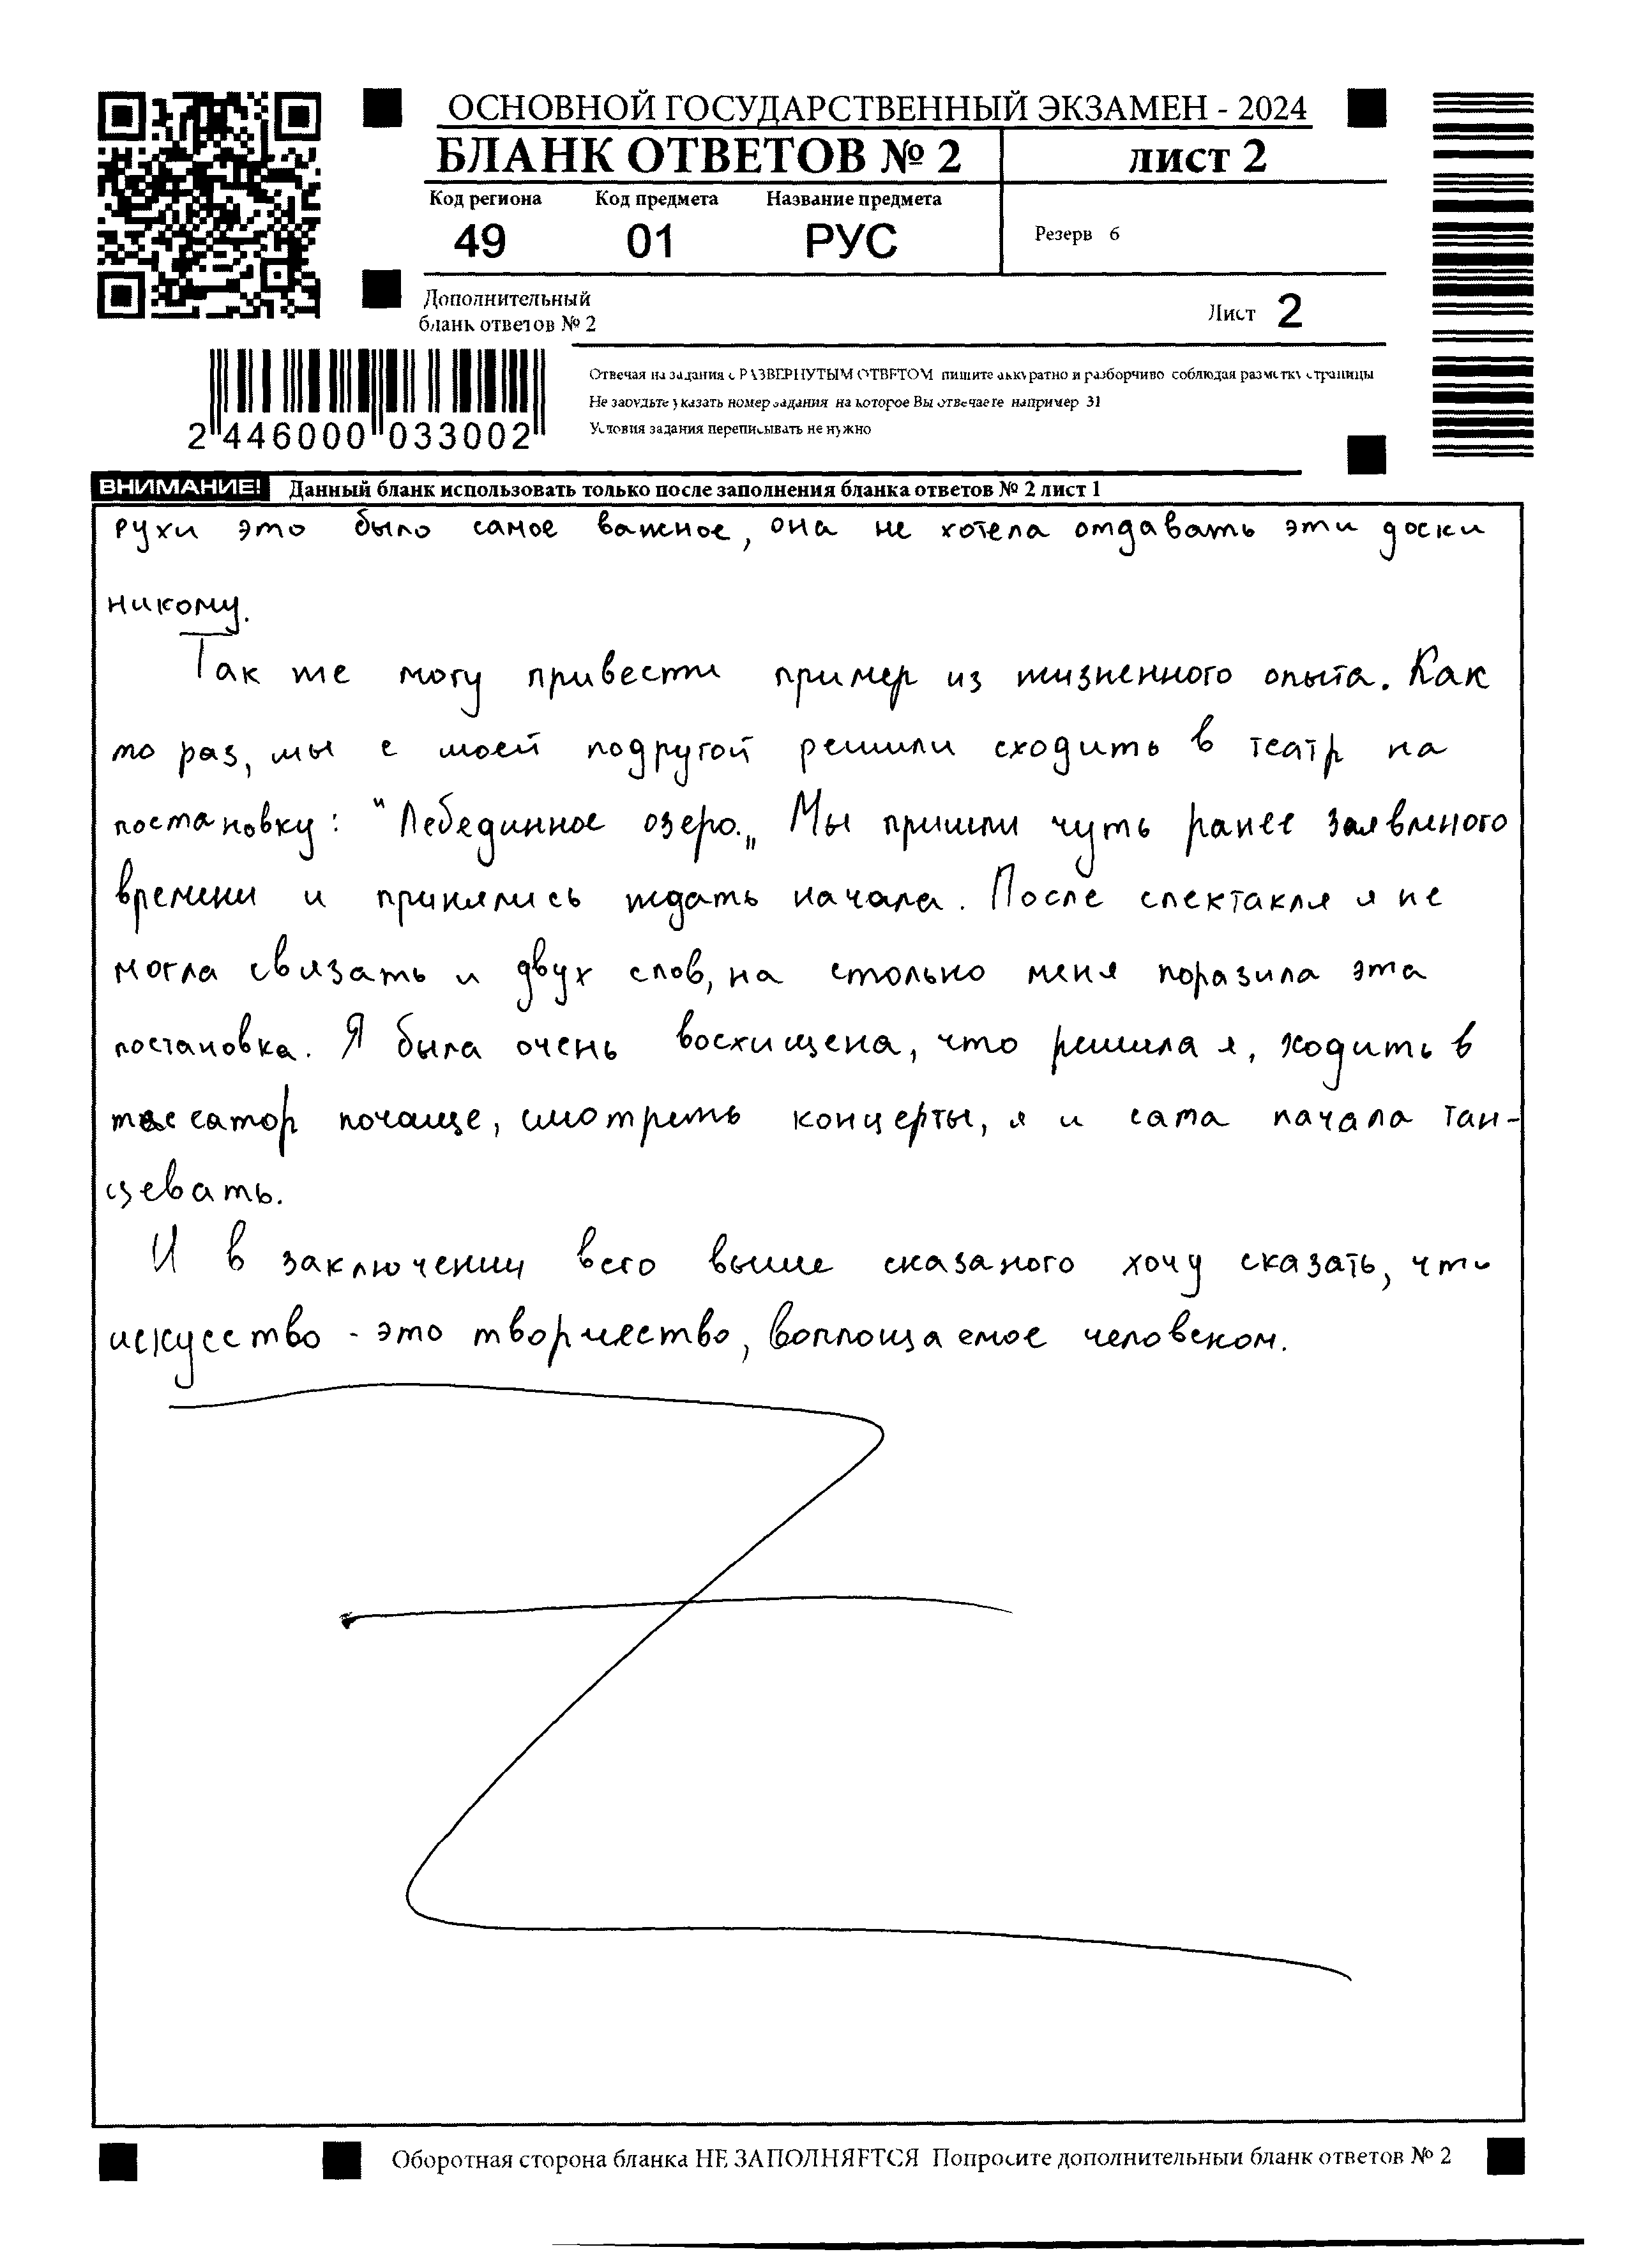 ОСНОВНОЙ ГОСУДАРСТВЕННЫЙ ЭКЗАМЕН - 2024
БЛАНК ОТВЕТОВ № 2
лист 2
Код региона Код предмета Название предмета
49 01 РУС
Резерв 6
Дополнительный
бланк ответов № 2
Лист 2
Отвечая на задания с РАЗВЕРНУТЫМ ОТВЕТОМ пишите аккуратно и разборчиво соблюдая разметку страницы
Не забудьте указать номер задания на которое Вы отвечаете например 31
Условия задания переписывать не нужно
2 446000 033002
ВНИМАНИЕ! Данный бланк использовать только после заполнения бланка ответов № 2 лист 1
рухи это было самое важное, она не хотела отдавать эти доски
никому.
Так же могу привести пример из жизненного опыта. Как
то раз, мы с моей подругой решили сходить в театр на
постановку: "Лебединное озеро.„ Мы пришли чуть ранее заявленого
времени и принялись ждать начала. После спектакля я не
могла связать и двух слов, на столько меня поразила эта
постановка. Я была очень восхищена, что решила я, ходить в
почаще, смотреть концерты, я и сама начала тан-
цевать.
И в заключении всего выше сказаного хочу сказать, что
искусство - это творчество, воплощаемое человеком.
Оборотная сторона бланка НЕ ЗАПОЛНЯЕТСЯ Попросите дополнительный бланк ответов № 2